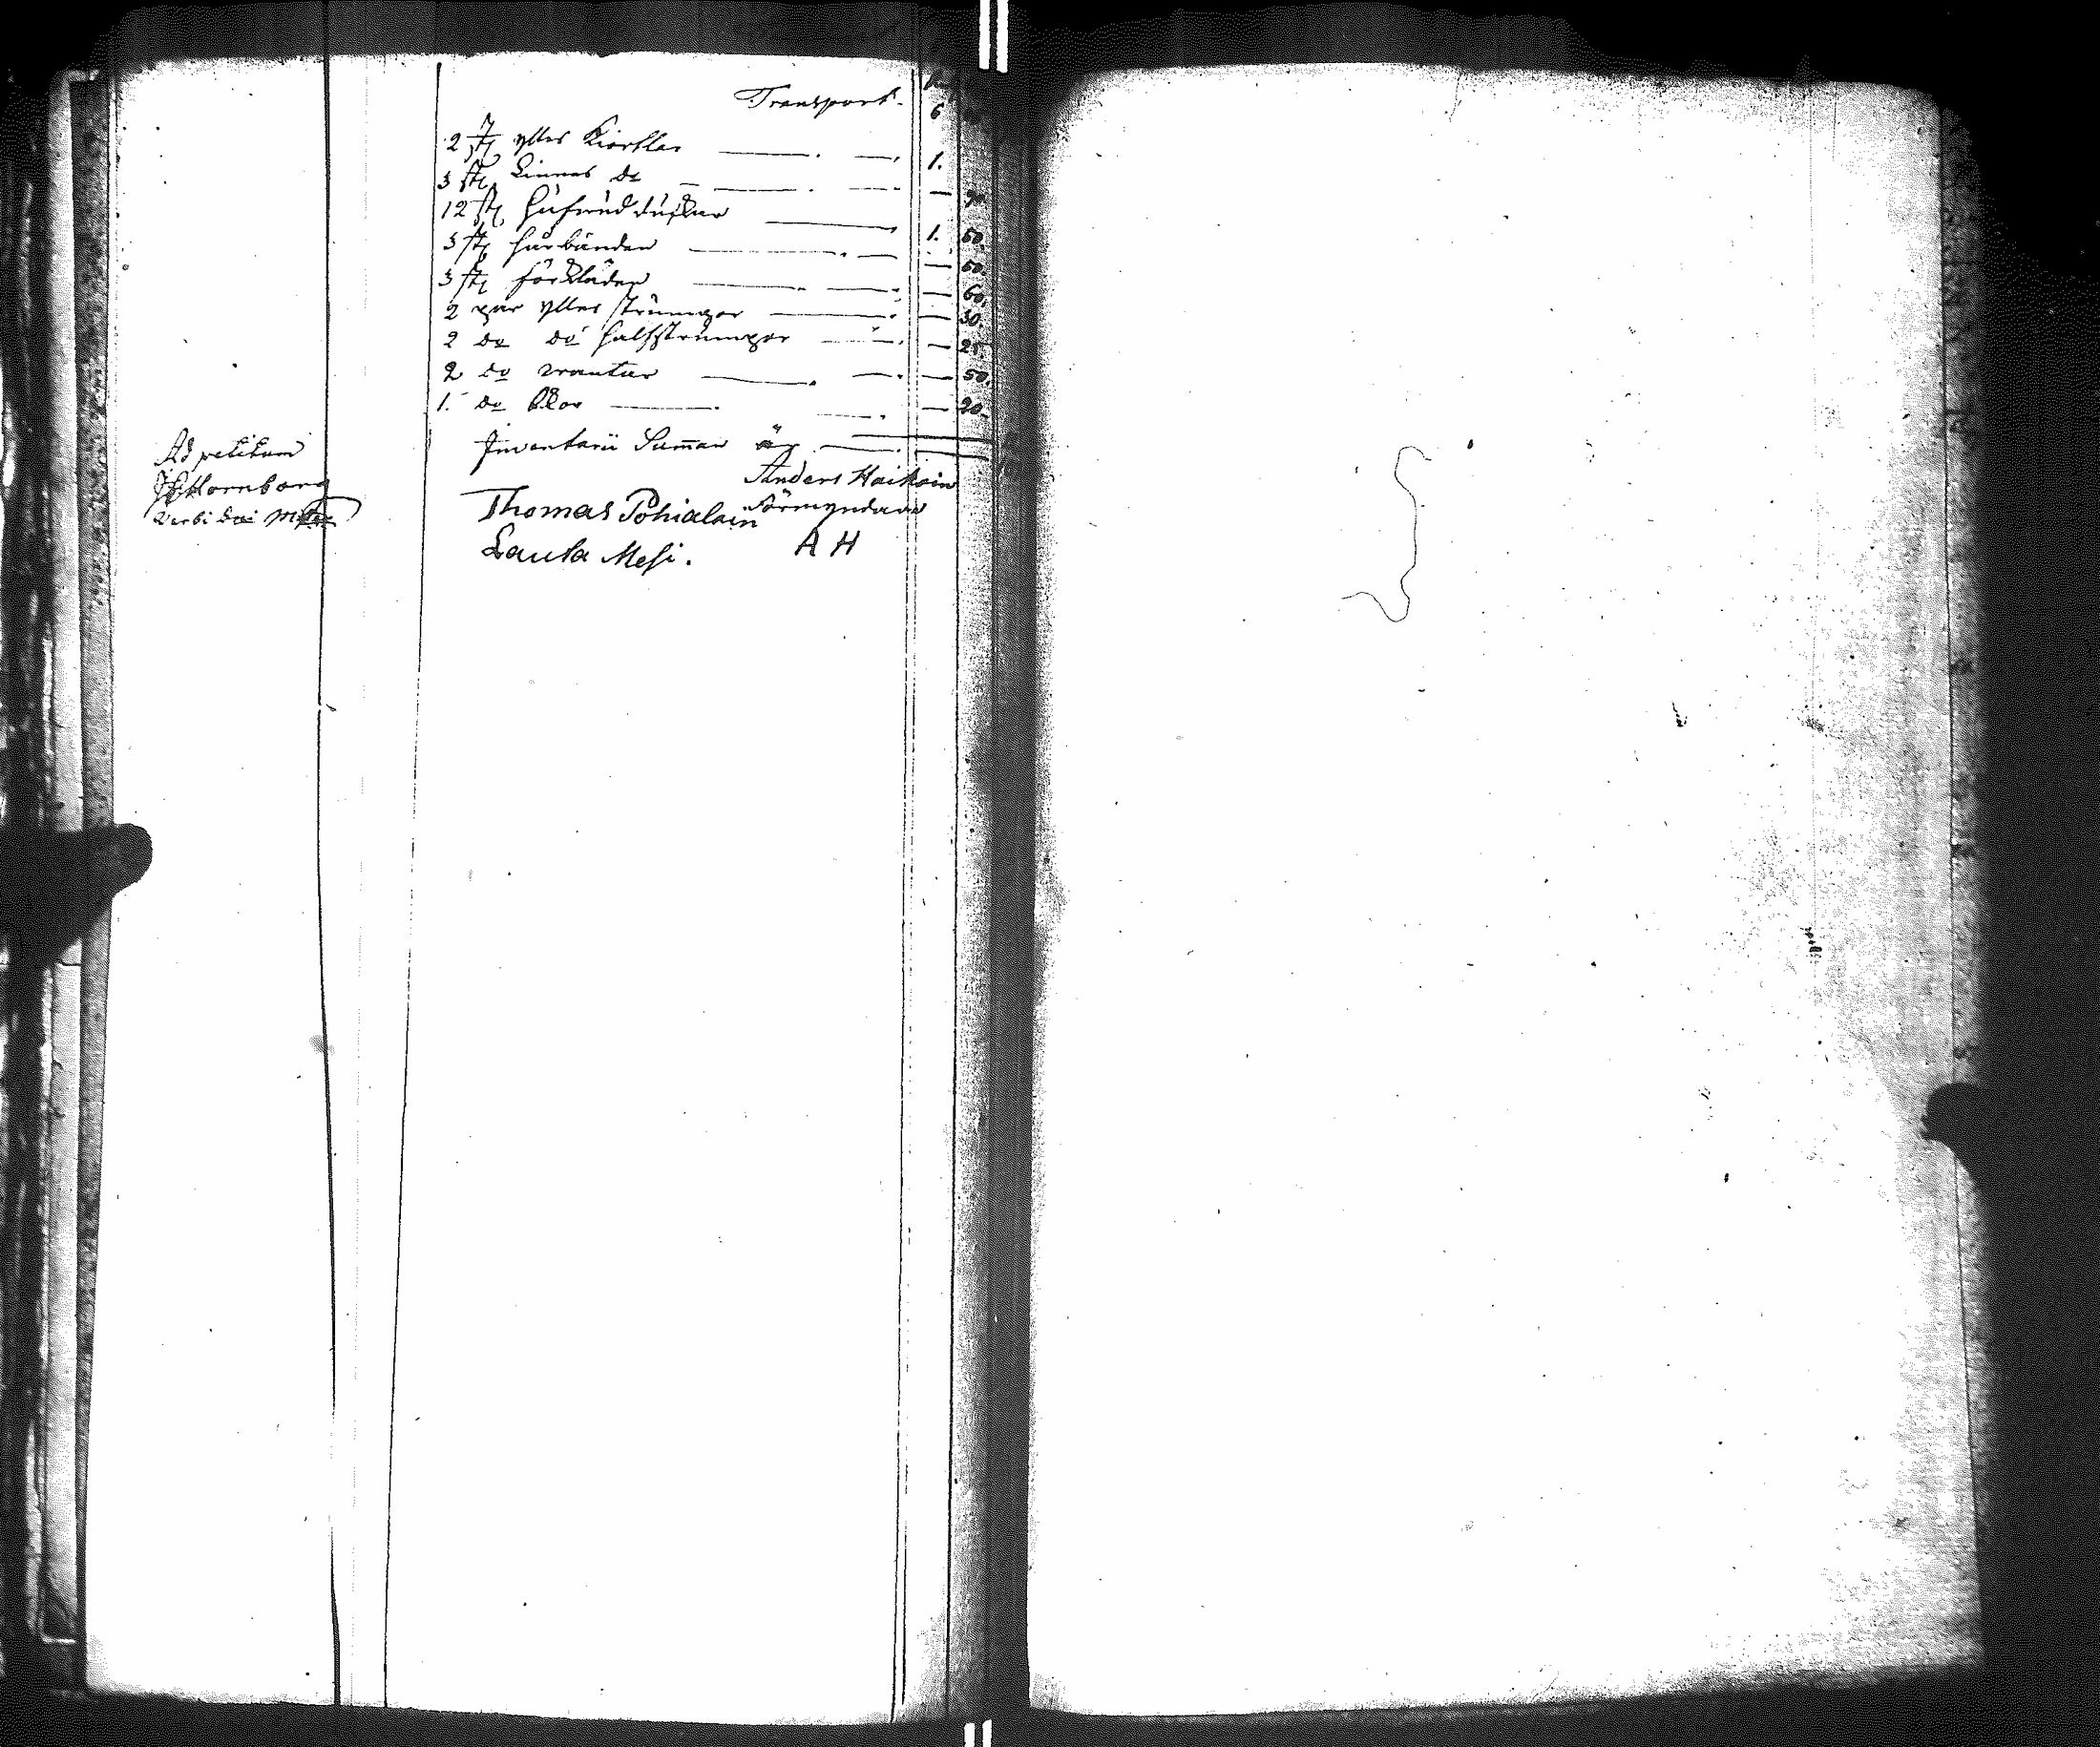 Transport 6
2 st ylles Kiortlar 1.
3 st Linnes do — 90.
12 st hufwud dukar 1. 50.
3 st hårbanden — 50.
3 st förkläden — 60.
2 par ylles strumpor — 30.
2 do do halfstrumpor — 25.
2 do vantar — 50.
1. do skor — 20.
Inventarii Summan är
Ad petitum
Hornborg
Verbi Dei
Anders Haikoin
Förmyndare
A H
Thomas Pohialain
Lauka Mesi.